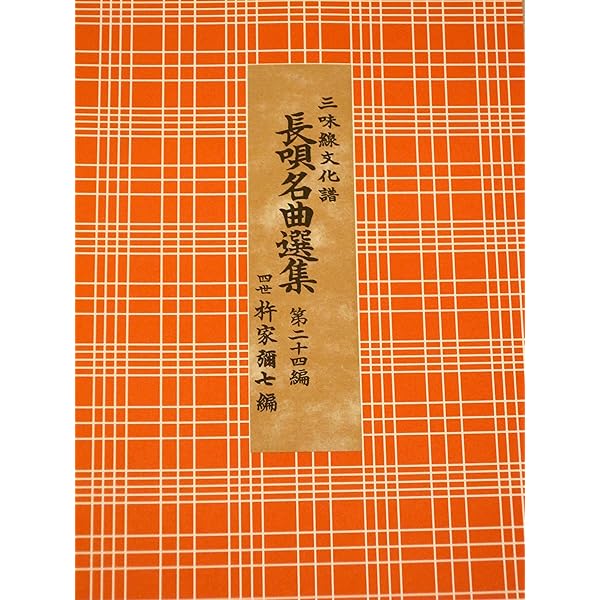 三味線文化譜
長唄名曲選集
第二十四編
四世 杵家彌七編